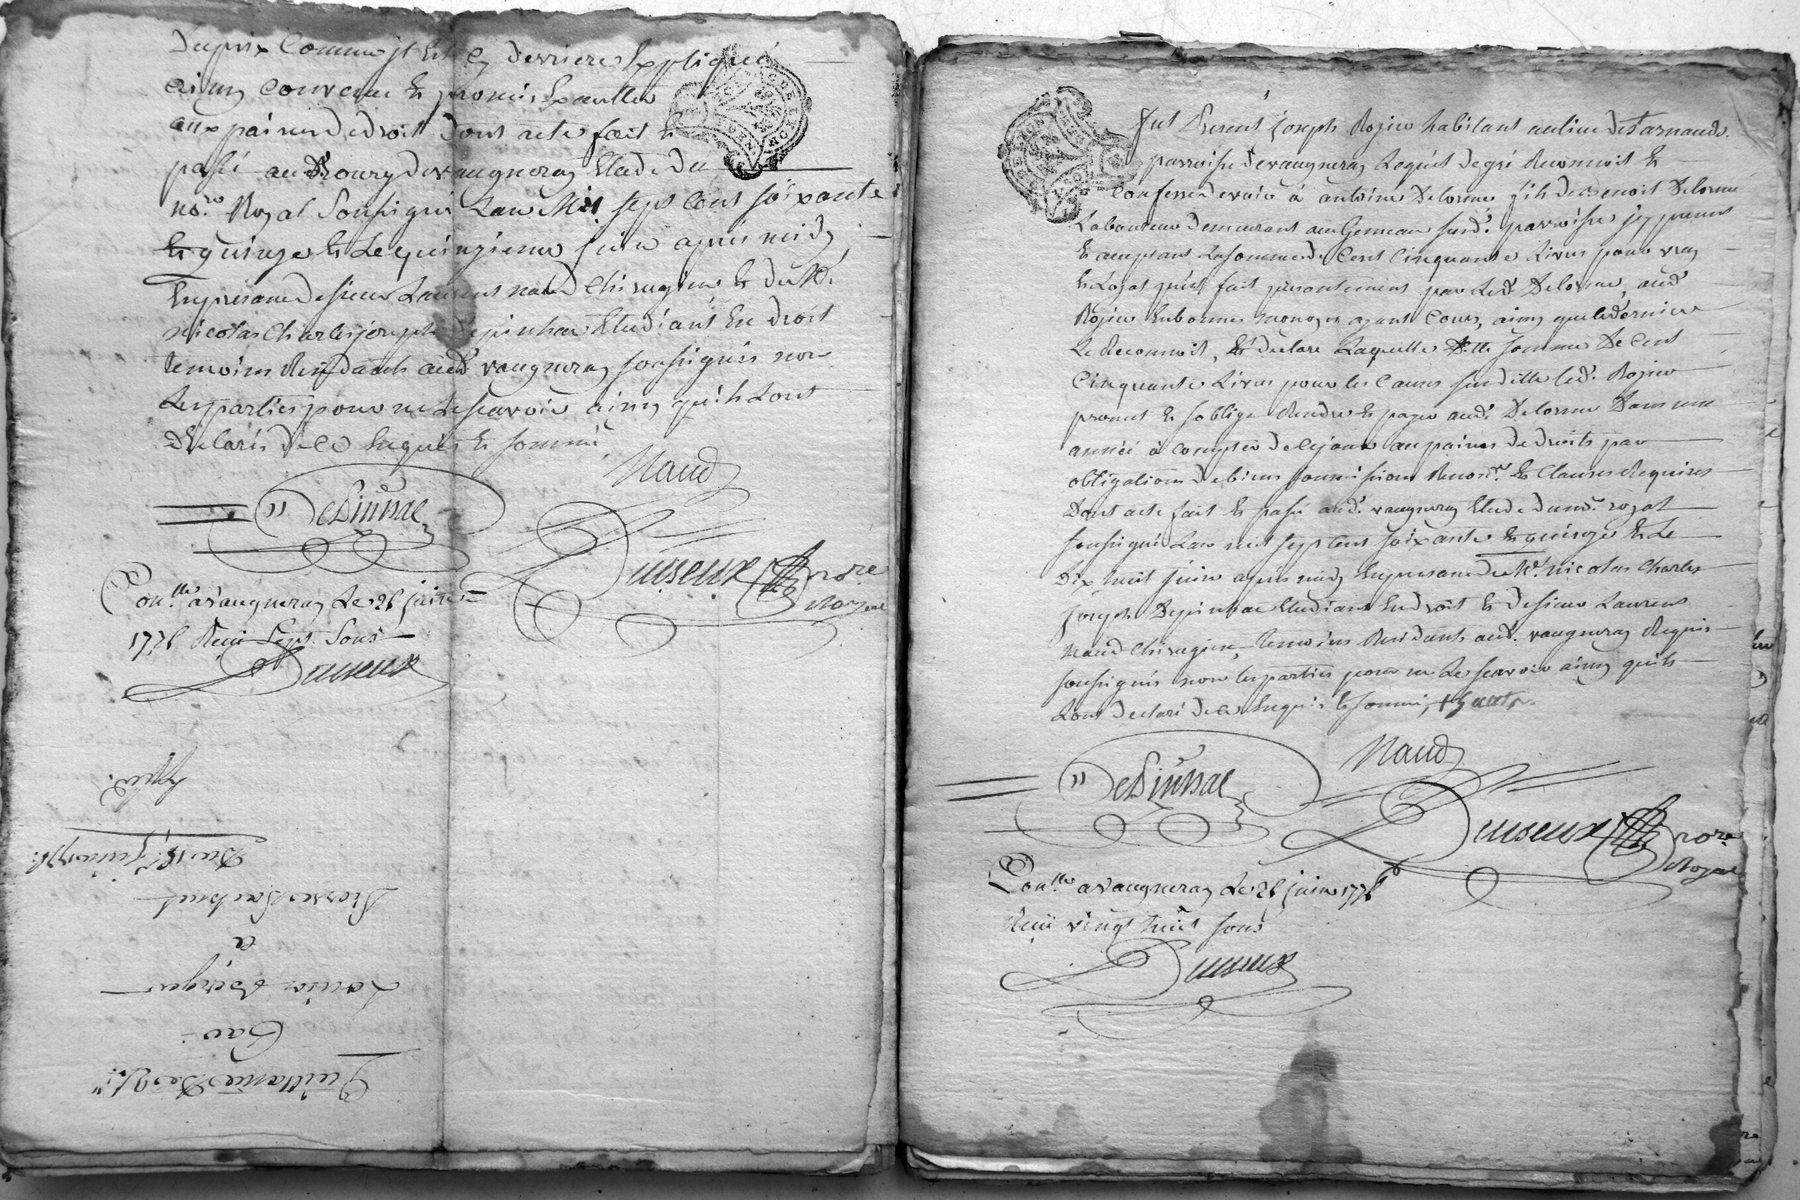 Duprix Comme il Est Cy derriere Expliqué
ainsy Convenu Et promis Executter
aux peines de droit Dont acte fait Et
passé au Bourg de vaugneray Etude du
no.re Royal Soussigné L'an Mil sept Cent soixante
Et quinze Et Le quinzieme juin apres midy
En presence de sieur Laurens naud Chirugien Et du Sr.
nicolas Charles joseph Depinhac Etudiant En droit
temoins Residants aud. vaugneray soussignés non
Les parties pour ne Le scavoir ainsy qu'ils L'ont
Declarés de ce Enquis Et sommé
Naud
DePinhac
Duseux no.re
Royal
Con.lle a Vaugneray Le 26 juin
1775 Reçu Sept Sous
Duseux
Quittance de
Par
Louis
a
Pierre
Du 15.e Juin 1775.
Fut Present Joseph Rojieu habitant au lieu de
parroisse de vaugneray Lequel de gré Reconnoit Et
Confesse devoir à antoine Delorme fils de Benoit Delorme
Laboureur demeurant au susd. parroisse
Et acceptant La somme de Cent Cinquante Livres pour vray
Et Loyal prêt fait presentement par Led. Delorme, aud.
Rojieu En bonnes monoyes ayant Cours, ainsy que le dernier
Le Reconnoit, Et declare Laquelle Ditte somme De Cent
Cinquante Livres pour les Causes susditte led. Rojieu
promet Et s'oblige Rendre Et payer aud. Delorme Dans une
année à Compter de Ce jour aux peines de droits par
obligations de biens soumissions Renon.on Et Clauses Requises
Dont acte fait Et passé aud. vaugneray Etude du no.re royal
soussigné L'an mil sept Cent soixante Et quinze Et Le
Dix huit juin apres midy En presence du Sr. nicolas Charles
Joseph Depinhac Etudiant En droit Et de sieur Laurens
naud Chirugien, temoins Residants aud. vaugneray Requis
soussignés non les parties pour ne Le scavoir ainsy qu'ils
L'ont declaré de ce Enquis Et sommé,
Naud
DePinhac
Duseux no.re
Royal
Con.lle a Vaugneray Le 26 juin 1775
Reçu vingt huit sous
Duseux